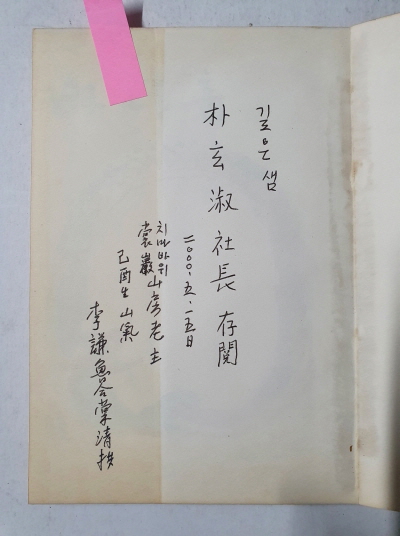 깊은샘
朴玄淑社長 存閱
二000.五.一五日
치마바위
裳巖山房老主
己酉生 山氣
李謙魯合掌淸拱